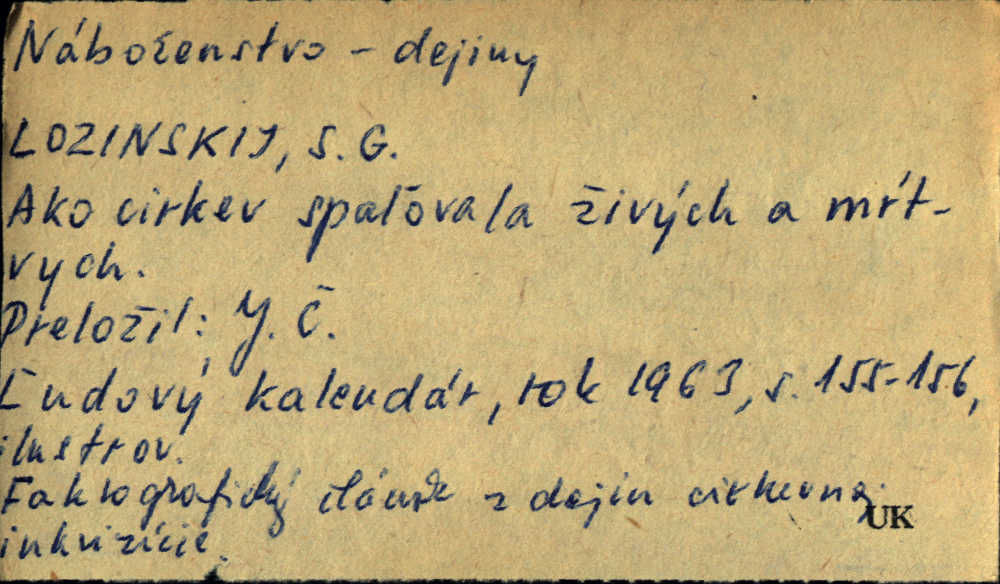 Náboženstvo - dejiny
LOZINSKIJ, S. G.
Ako cirkev spaľovala živých a mŕt-
vych.
Preložil: J. Č.
Ľudový kalendár, rok 1963, s. 155-156,
ilustrov.
Faktografický článok z dejín cirkevnej
inkvizície.
UK